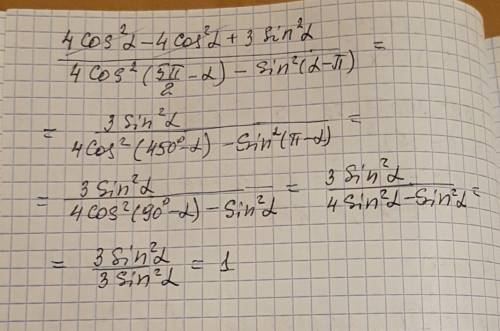 (4 Cos²α - 4 Cos²α + 3 Sin²α) / (4 Cos²(5π/2 - α) - Sin²(α - π)) =
= 3 Sin²α / (4 Cos²(450° - α) - Sin²(π - α)) =
= 3 Sin²α / (4 Cos²(90° - α) - Sin²α) = 3 Sin²α / (4 Sin²α - Sin²α) =
= 3 Sin²α / 3 Sin²α = 1